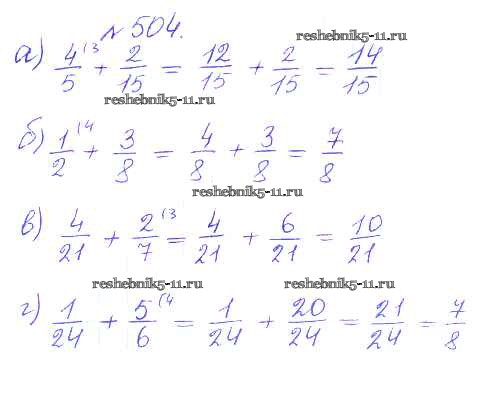 № 504.
reshebnik5-11.ru
а) 4/5 (3 + 2/15 = 12/15 + 2/15 = 14/15
reshebnik5-11.ru
б) 1/2 (4 + 3/8 = 4/8 + 3/8 = 7/8
reshebnik5-11.ru
в) 4/21 + 2/7 (3 = 4/21 + 6/21 = 10/21
reshebnik5-11.ru reshebnik5-11.ru
г) 1/24 + 5/6 (4 = 1/24 + 20/24 = 21/24 = 7/8